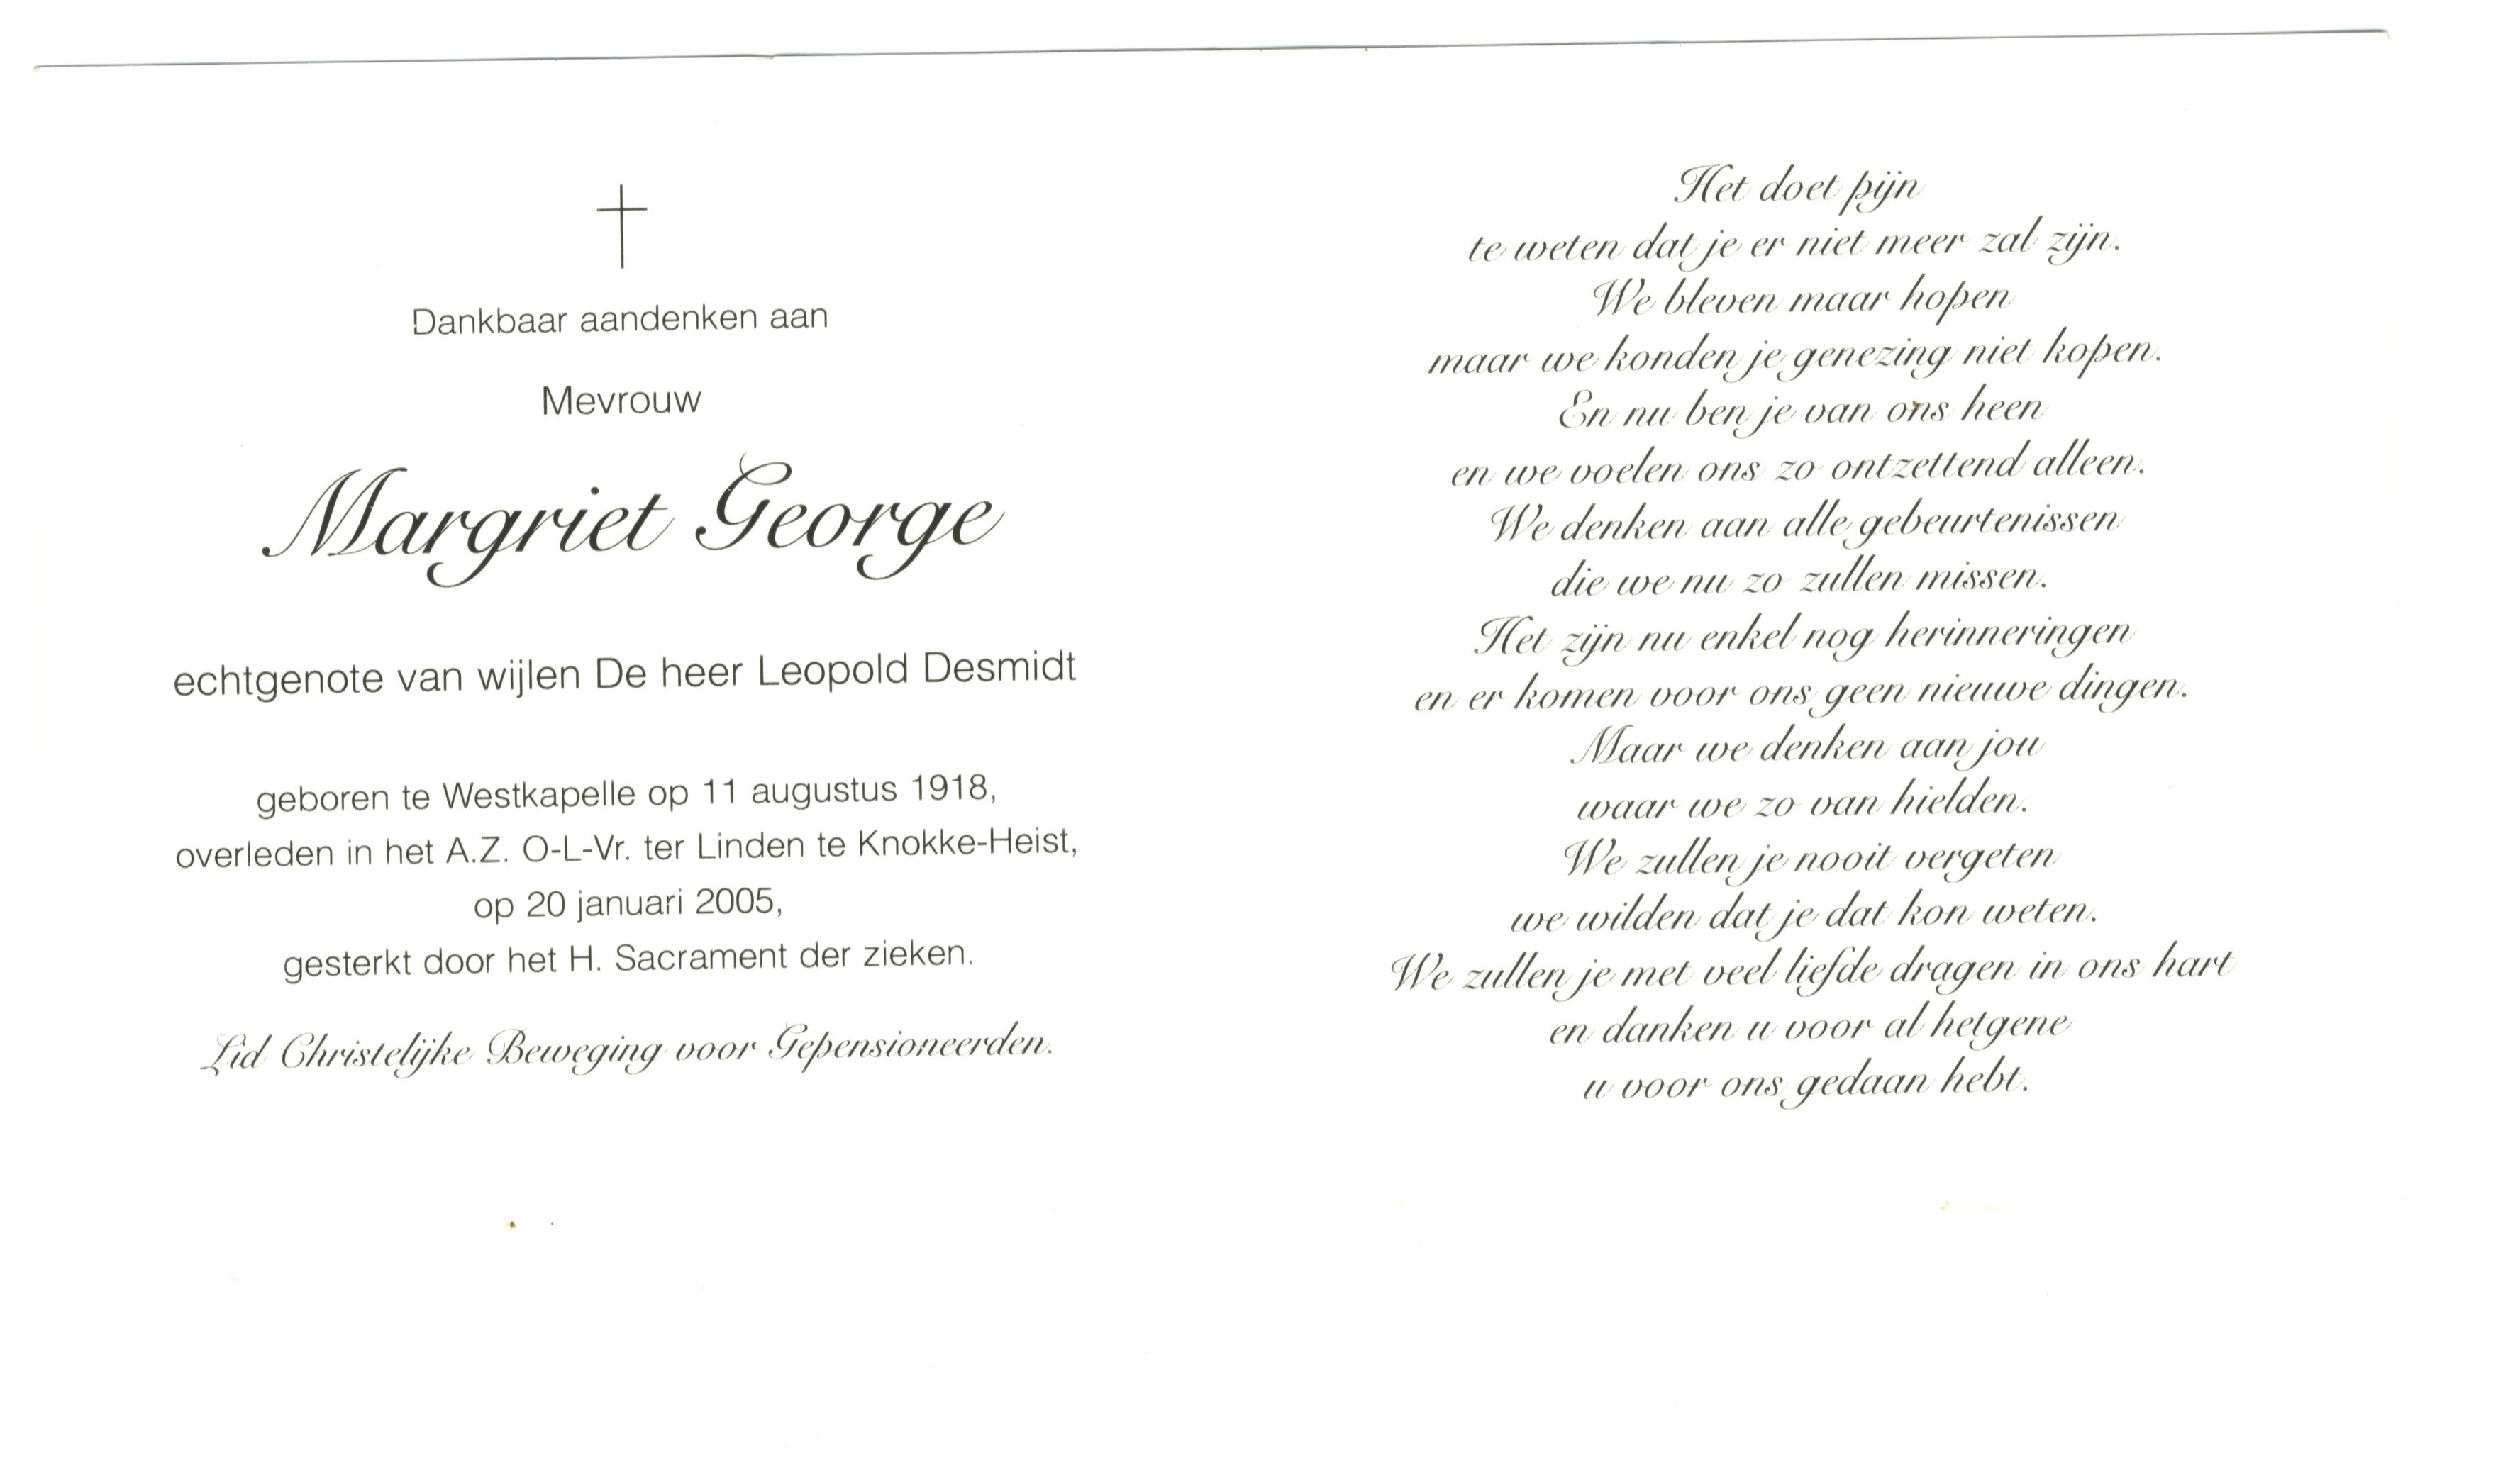 Dankbaar aandenken aan
Mevrouw
Margriet George
echtgenote van wijlen De heer Leopold Desmidt
geboren te Westkapelle op 11 augustus 1918,
overleden in het A.Z. O-L-Vr. ter Linden te Knokke-Heist,
op 20 januari 2005,
gesterkt door het H. Sacrament der zieken.
Lid Christelijke Beweging voor Gepensioneerden.
Het doet pijn
te weten dat je er niet meer zal zijn.
We bleven maar hopen
maar we konden je genezing niet kopen.
En nu ben je van ons heen
en we voelen ons zo ontzettend alleen.
We denken aan alle gebeurtenissen
die we nu zo zullen missen.
Het zijn nu enkel nog herinneringen
en er komen voor ons geen nieuwe dingen.
Maar we denken aan jou
waar we zo van hielden.
We zullen je nooit vergeten
we wilden dat je dat kon weten.
We zullen je met veel liefde dragen in ons hart
en danken u voor al hetgene
u voor ons gedaan hebt.